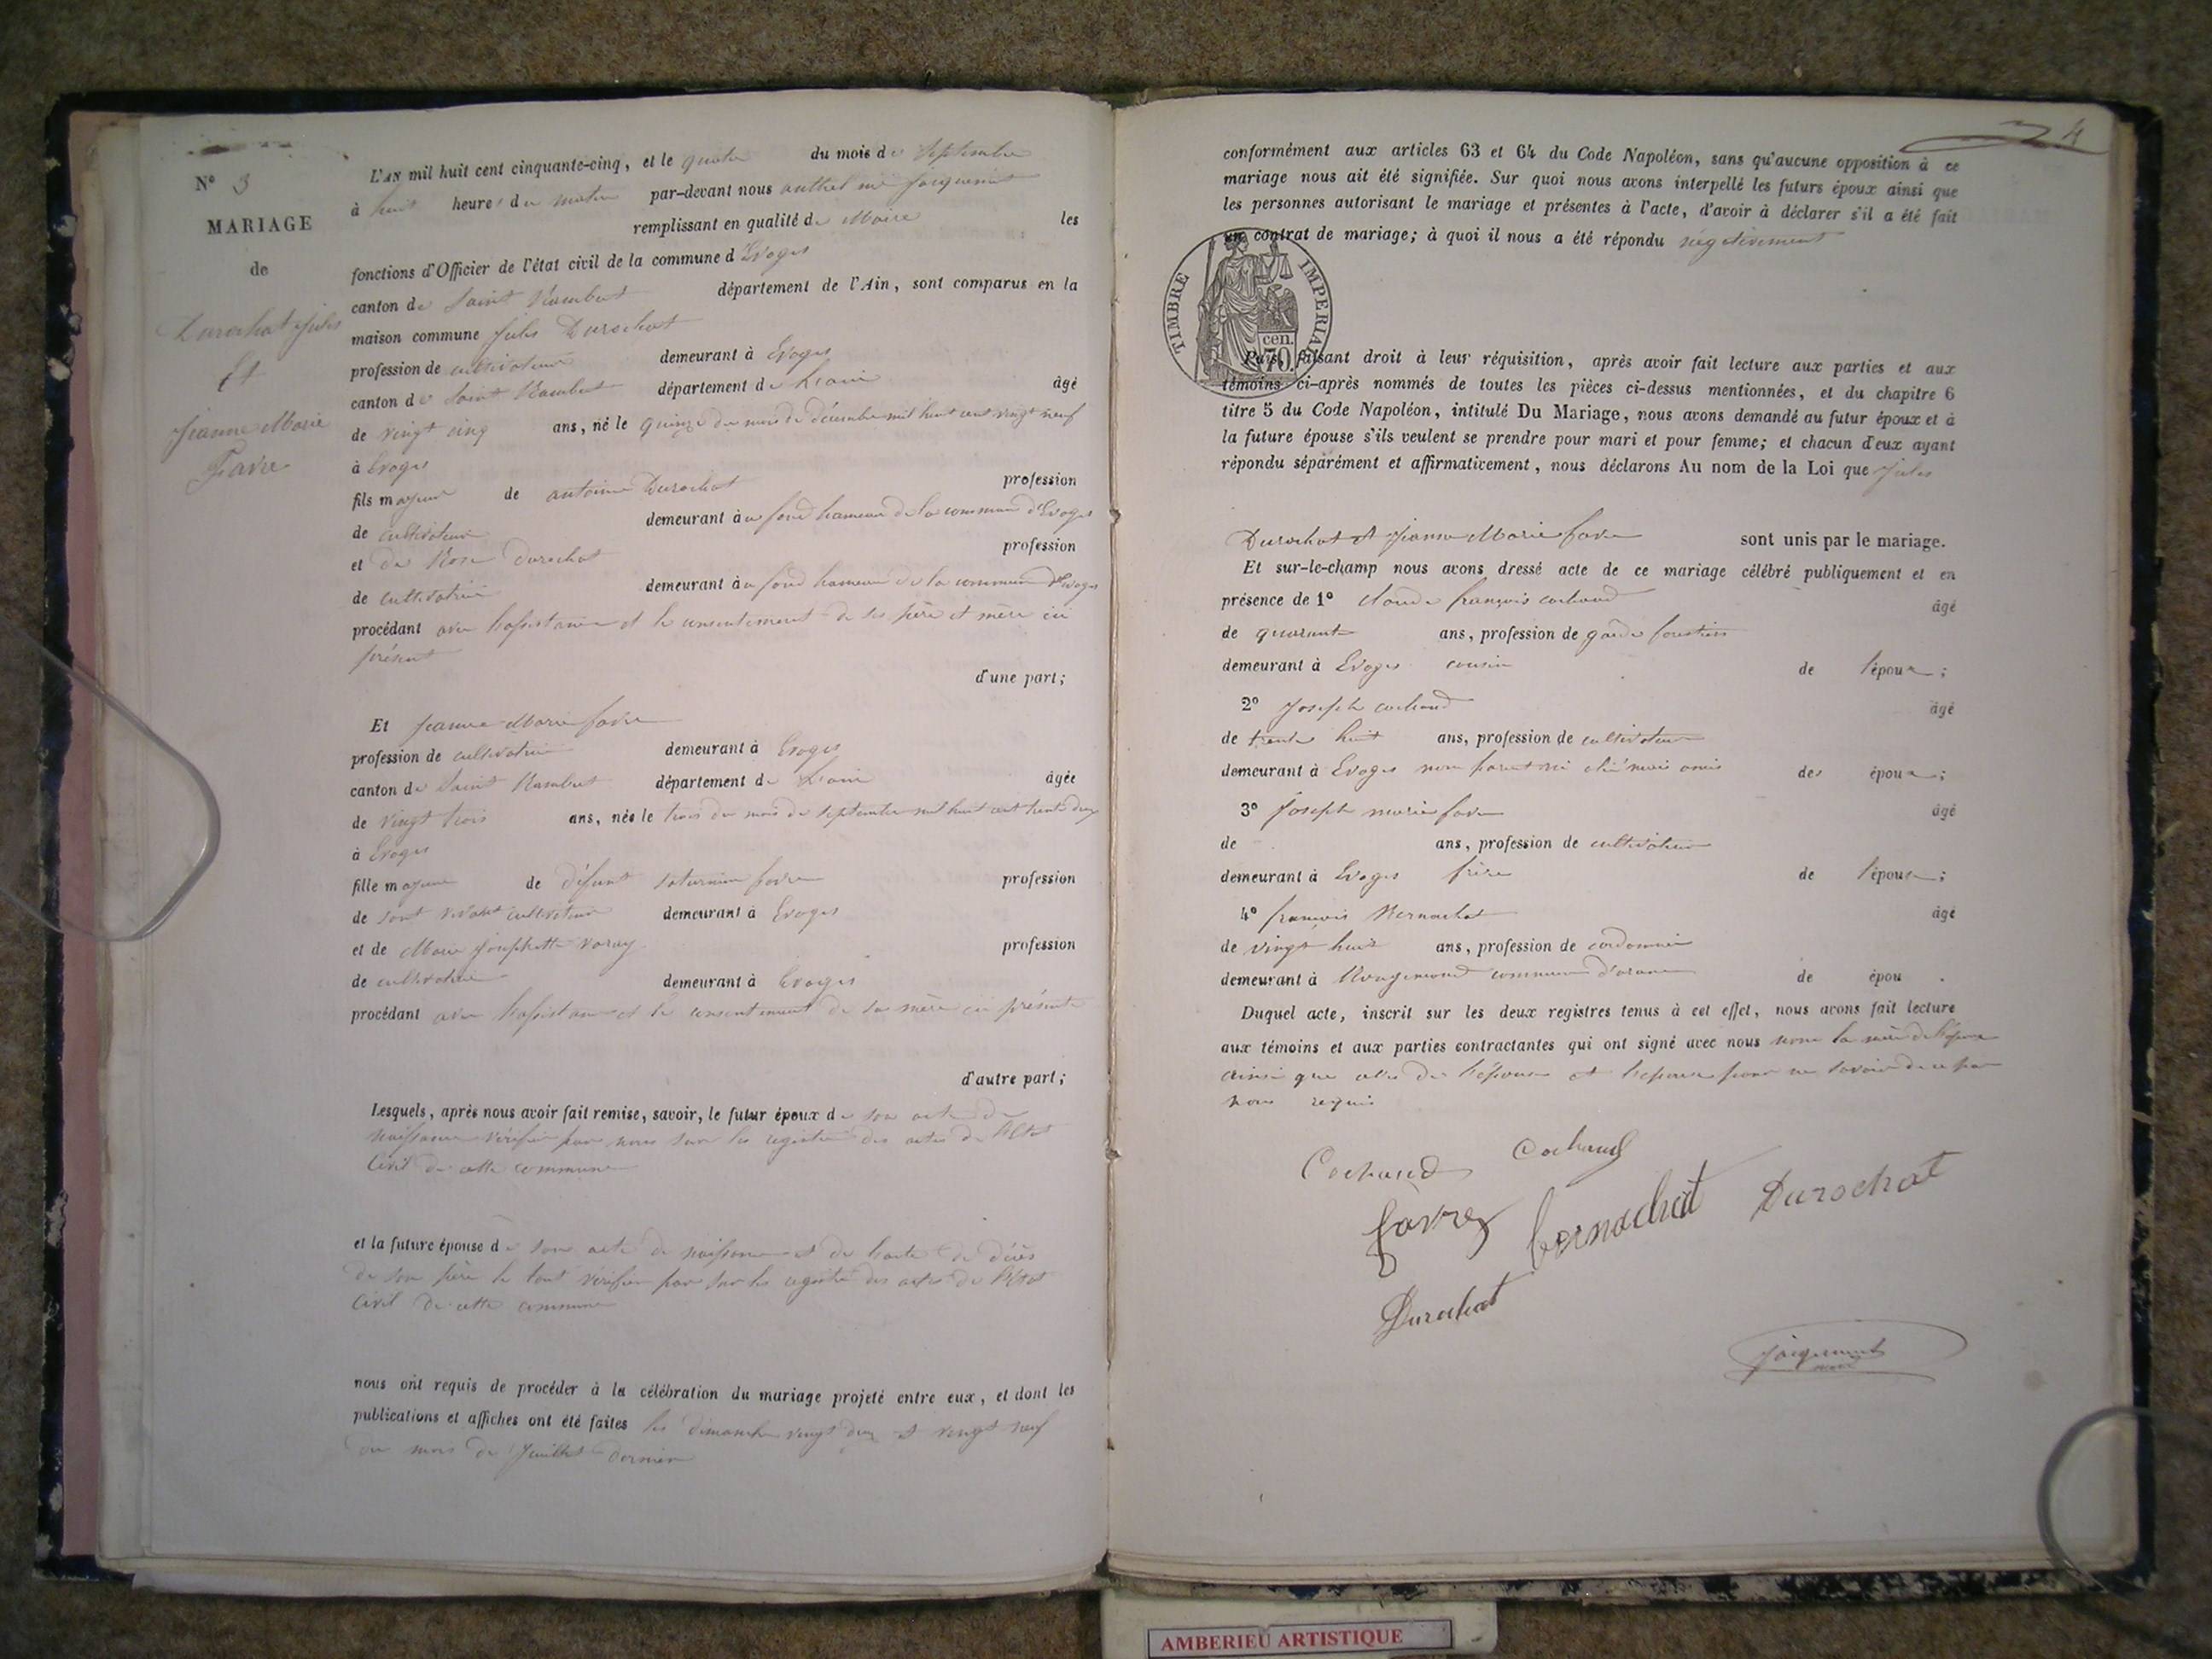 N° 3
MARIAGE
de
Durochat Jules
Et
Jeanne Marie
Favre
L'AN mil huit cent cinquante-cinq, et le quatre du mois de Septembre
à huit heures du matin par-devant nous anthelme Jacquemet
remplissant en qualité de Maire les
fonctions d'Officier de l'état civil de la commune d'Evoges
canton de Saint Rambert département de l'Ain, sont comparus en la
maison commune Jules Durochat
profession de cultivateur demeurant à Evoges
canton de Saint Rambert département de L'ain âgé
de vingt cinq ans, né le quinze du mois de décembre mil huit cent vingt neuf
à Evoges
fils majeur de antoine Durochat profession
de cultivateur demeurant au fond hameau de la commune d'Evoges
et de Rose Durochat profession
de cultivatrice demeurant au fond hameau de la commune d'Evoges
procédant avec l'assistance et le consentement de ses père et mère ici
présent
d'une part;
Et Jeanne Marie favre
profession de cultivatrice demeurant à Evoges
canton de Saint Rambert département de L'ain âgée
de vingt trois ans, née le trois du mois de septembre mil huit cent trente deux
à Evoges
fille majeure de défunt saturnin favre profession
de sont vivant cultivateur demeurant à Evoges
et de Marie Josephette profession
de cultivatrice demeurant à Evoges
procédant avec l'assistance et le consentement de sa mère ici présente
d'autre part;
Lesquels, après nous avoir fait remise, savoir, le futur époux de son acte de
naissance vérifier par nous sur les registre des actes de l'Etat
Civil de cette commune
et la future épouse de son acte de naissance et de l'acte de décès
de son père le tout vérifier par sur les registre des actes de l'Etat
Civil de cette commune
nous ont requis de procéder à la célébration du mariage projeté entre eux, et dont les
publications et affiches ont été faites les dimanche vingt deux et vingt neuf
du mois de Juillet dernier
4
conformément aux articles 63 et 64 du Code Napoléon, sans qu'aucune opposition à ce
mariage nous ait été signifiée. Sur quoi nous avons interpellé les futurs époux ainsi que
les personnes autorisant le mariage et présentes à l'acte, d'avoir à déclarer s'il a été fait
un contrat de mariage; à quoi il nous a été répondu négativement
TIMBRE IMPERIAL
70 cen.
Puis, faisant droit à leur réquisition, après avoir fait lecture aux parties et aux
témoins ci-après nommés de toutes les pièces ci-dessus mentionnées, et du chapitre 6
titre 5 du Code Napoléon, intitulé Du Mariage, nous avons demandé au futur époux et à
la future épouse s'ils veulent se prendre pour mari et pour femme; et chacun d'eux ayant
répondu séparément et affirmativement, nous déclarons Au nom de la Loi que Jules
Durochat et Jeanne Marie favre sont unis par le mariage.
Et sur-le-champ nous avons dressé acte de ce mariage célébré publiquement et en
présence de 1° claude françois cochaud âgé
de quarante ans, profession de garde forestier
demeurant à Evoges cousin de l'époux;
2° Joseph cochaud âgé
de trente huit ans, profession de cultivateur
demeurant à Evoges non parent ni allié mais amis des époux;
3° Joseph marie favre âgé
de ans, profession de cultivateur
demeurant à Evoges frère de l'épouse;
4° françois Bernachat âgé
de vingt huit ans, profession de cordonnier
demeurant à Rougemond commune d'aranc de épou .
Duquel acte, inscrit sur les deux registres tenus à cet effet, nous avons fait lecture
aux témoins et aux parties contractantes qui ont signé avec nous non la mère de l'époux
ainsi que celle de l'épouse et l'épouse pour ne savoir de ce par
nous requis
Cochaud Cochaud
favre bernachat Durochat
Durochat
Jacquemet
maire
AMBERIEU ARTISTIQUE